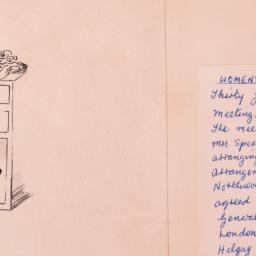 WOMEN'
Thirty
meeting.
The mee
Mrs. Spee
arranging
arrangem
Northwoo
agreed
General
London
Helgay